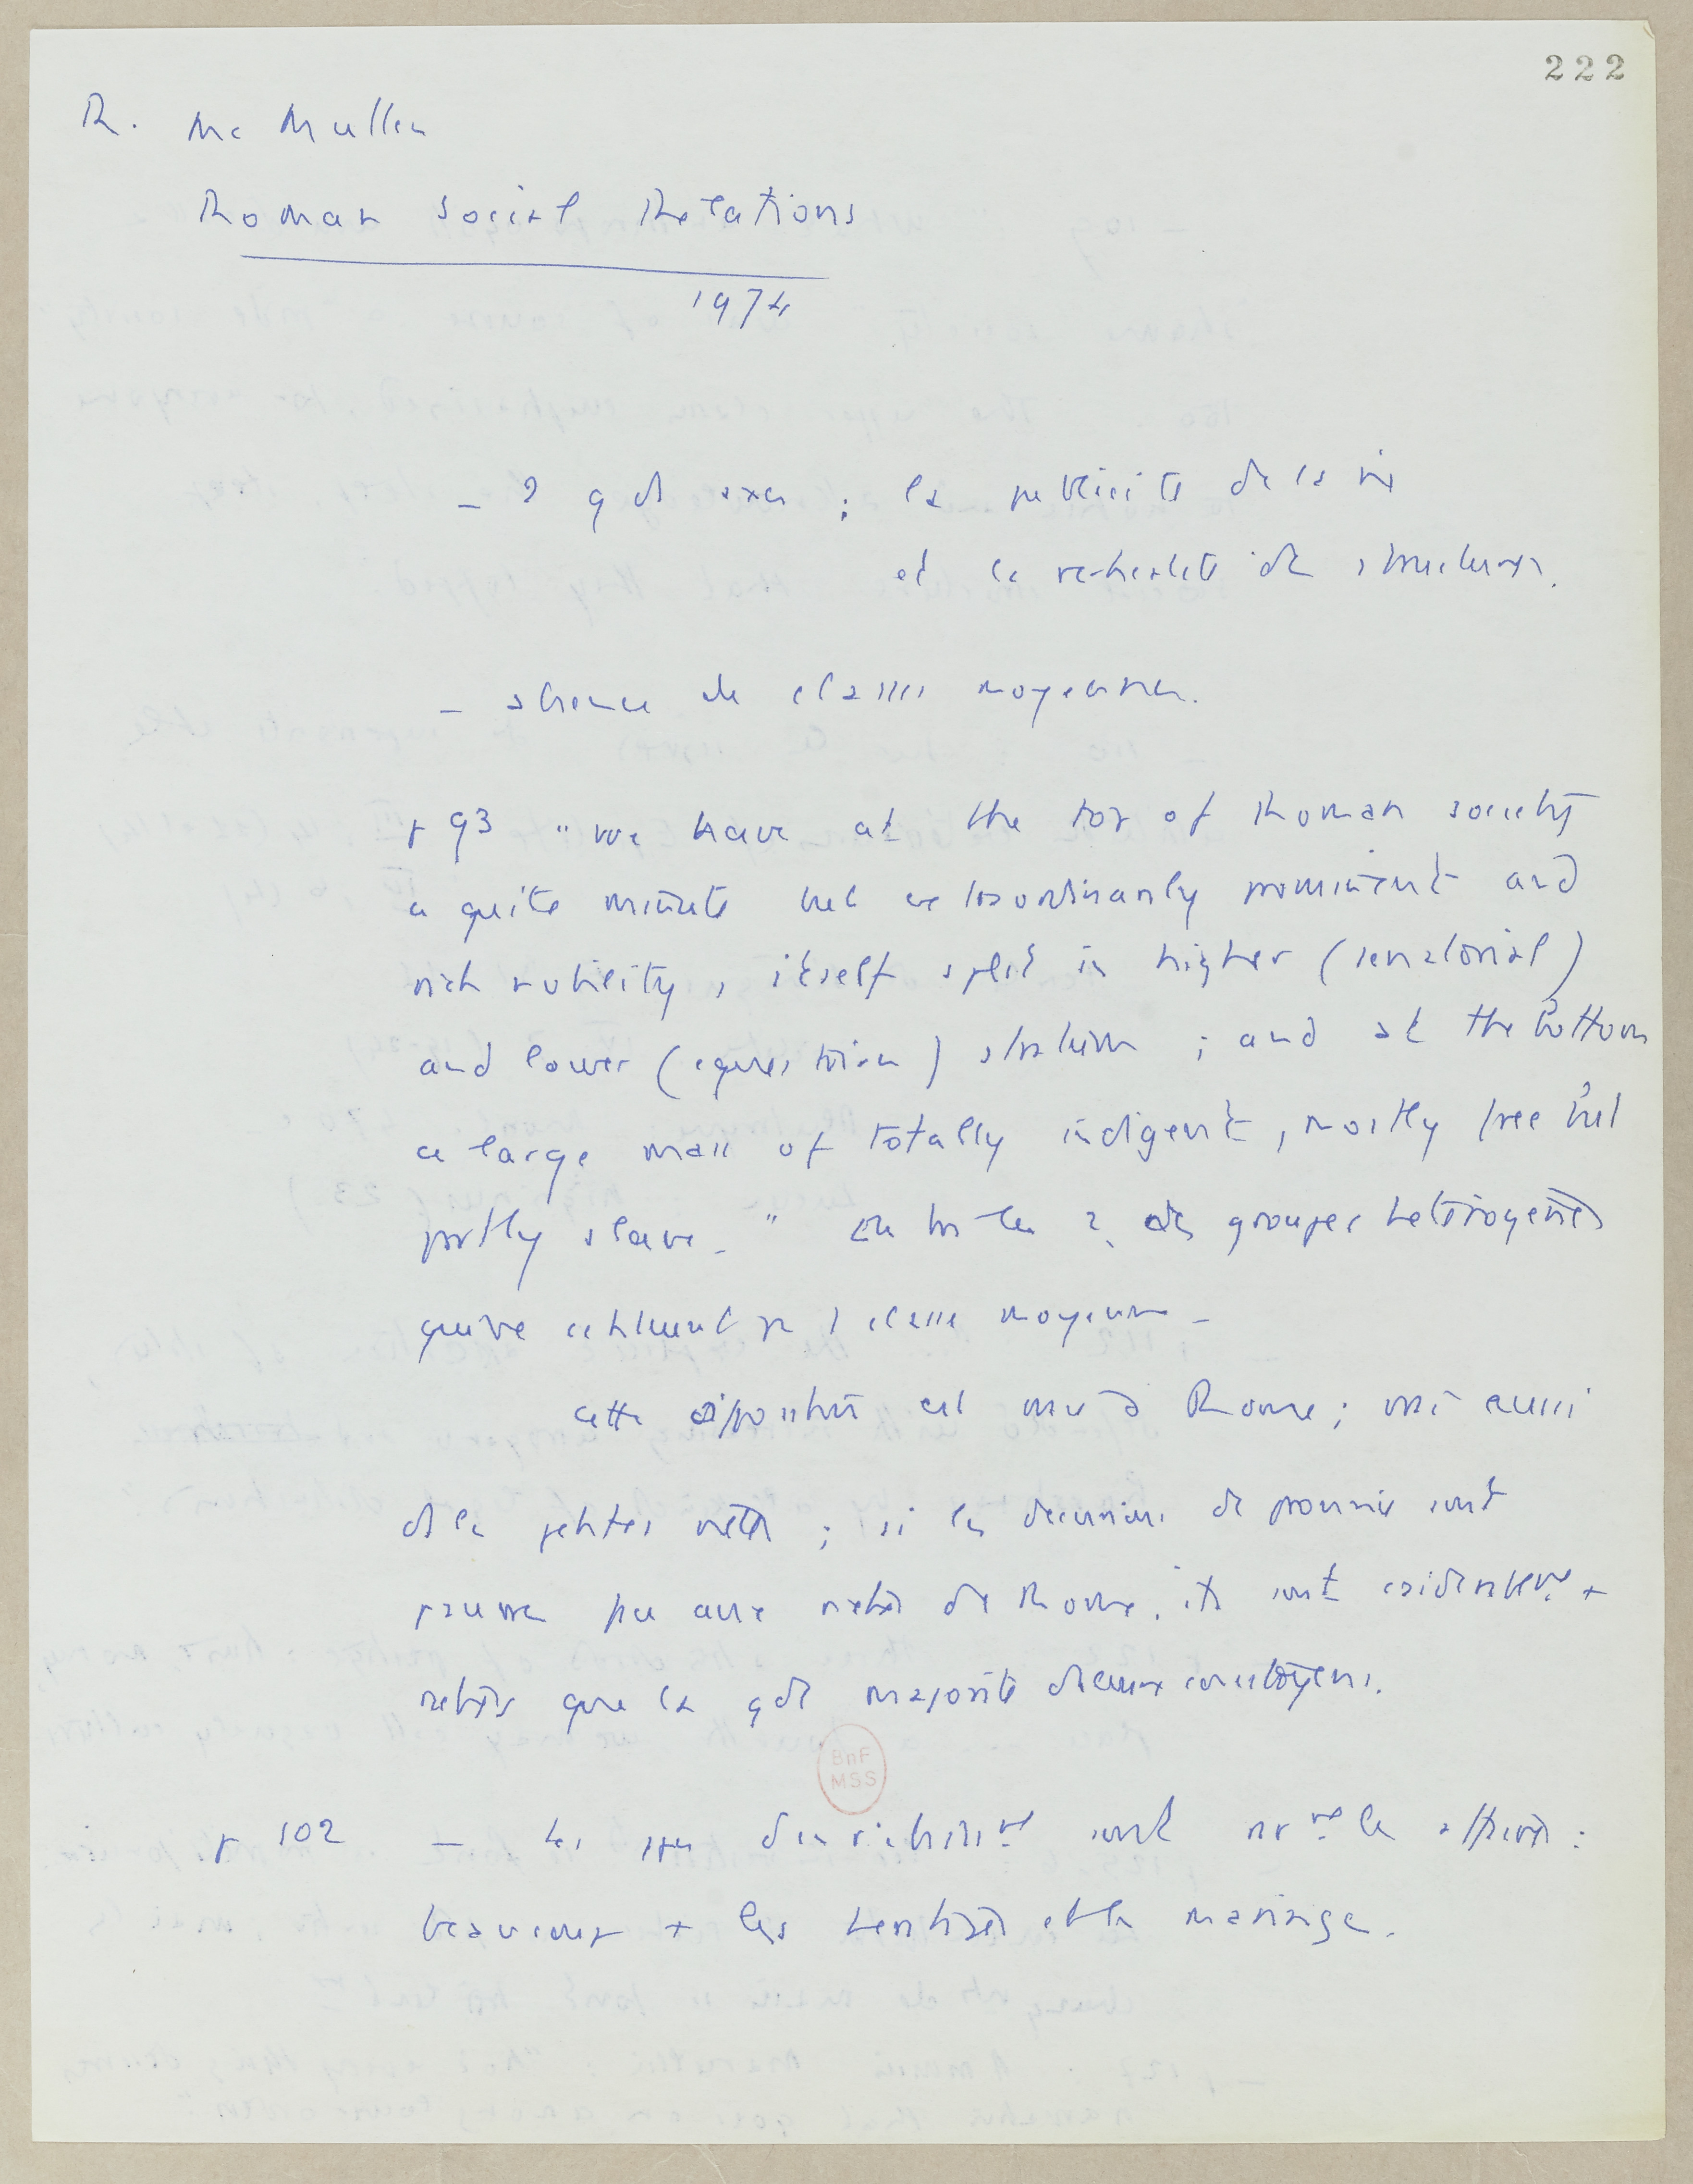 222
R. Mc Mullen
Roman Social Relations
1974
– 2 gds axes ; la publicité de la vie
et la verticalité de structures.
– absence de classes moyennes.
p 93 "we have at the top of Roman society
a quite minute but extraordinarily prominent and
rich nobility, itself split in higher (senatorial)
and lower (equestrian) stratum ; and at the bottom
a large mass of totally indigent, mostly free but
partly slave." Entre les 2, des groupes hétérogènes
qui ne constituent pas 1 classe moyenne –
cette disposition est vraie à Rome ; mais aussi
ds les petites villes ; si les décurions de province sont
pauvres par aux riches de Rome, ils sont évidemment +
riches que la gde majorité de leurs concitoyens.
BnF
MSS
p 102 – Les d'enrichissemt sont les affaires :
beaucoup + les héritages et les mariages.